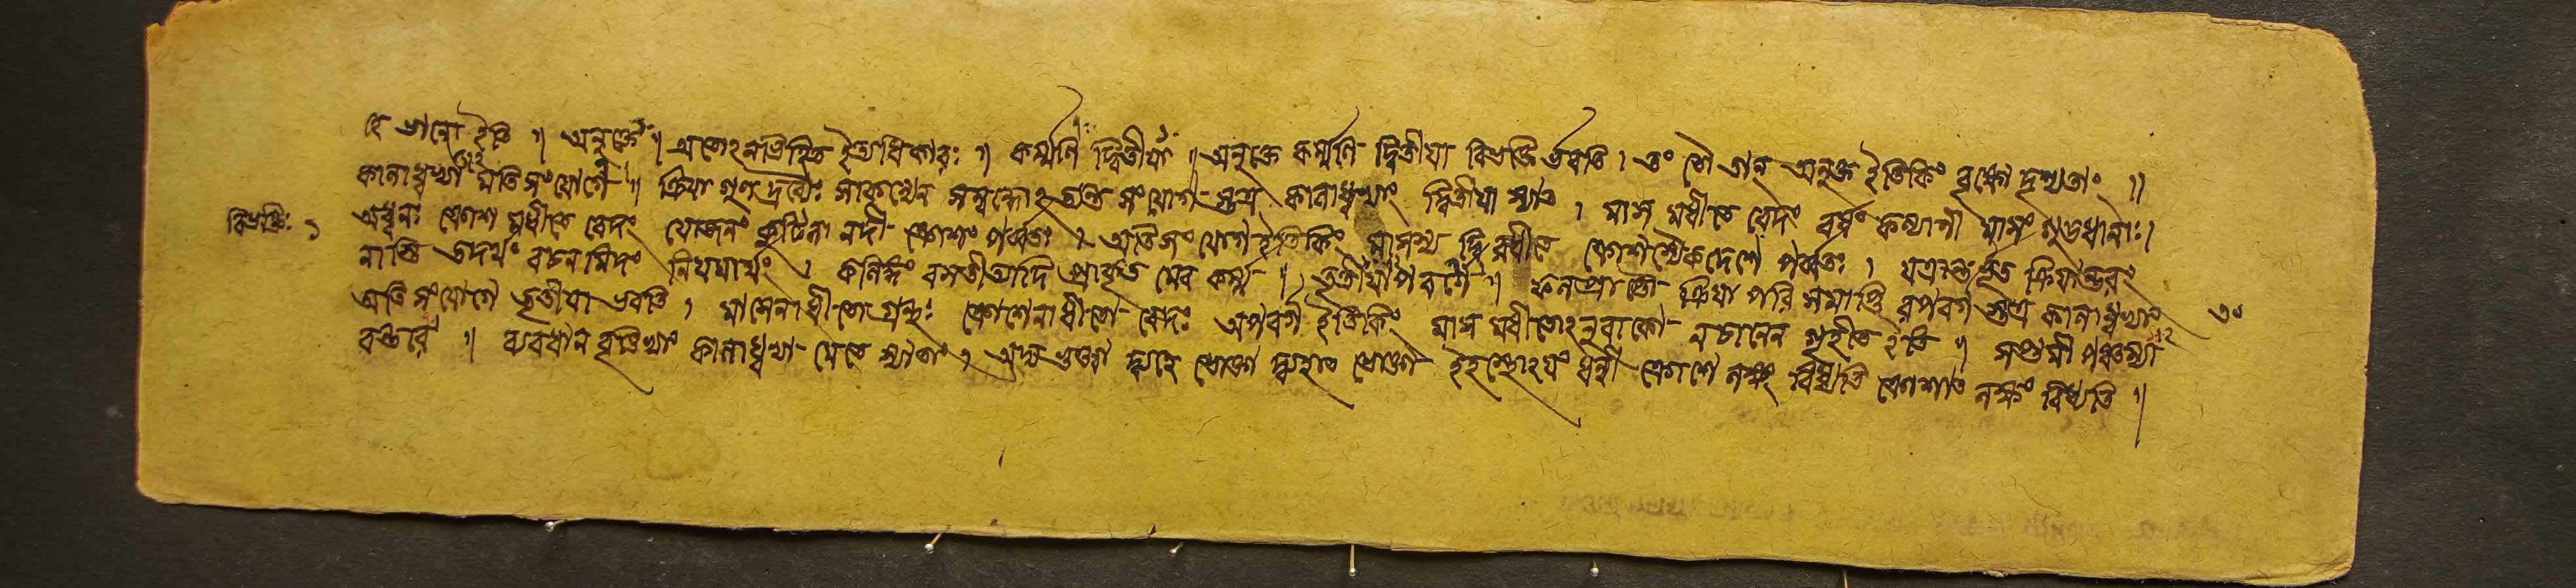 হে ভানো ইতি ॥ অনুক্তে ॥ অতোঽনভিহিত ইত্যধিকারঃ ॥ কর্ম্মণি দ্বিতীয়া ॥ অনুক্তে কর্ম্মণি দ্বিতীয়া বিভক্তি র্ভবতি । অনুক্ত ইতিকিং বৃক্ষো দৃশ্যতাং ॥
কালাধ্বভ্যা মতিসংযোগে ॥ ক্রিয়া গুণ দ্রব্যৈঃ সাকল্যেন সম্বন্ধোঽত্যন্ত সংযোগ স্তত্র কালাধ্বভ্যাং দ্বিতীয়া স্যাৎ । মাস মধীতে বেদং বর্ষং কল্যাণী মাসং গুডধানাঃ।
বিভক্তিঃ ১ অধ্বনঃ ক্রোশ মধীতে বেদং যোজনং কুটিলা নদী ক্রোশং পর্ব্বতঃ । অতিসংযোগ ইতিকিং মাসস্য দ্বি রধীতে ক্রোশস্যৈকদেশে পর্ব্বতঃ । ক্রিয়ান্তরং
নাস্তি তদর্থং বচনমিদং নিয়মার্থং । বসতীত্যাদি মেব কর্ম্ম ॥ তৃতীয়াপবর্গে ॥ ফলপ্রাপ্তৌ ক্রিয়া পরিসমাপ্তি রপবর্গ স্তত্র কালাধ্বভ্যাং
অতি সংযোগে তৃতীয়া ভবতি । মাসেনাধীতো গ্রন্থঃ ক্রোশেনাধীতো বেদঃ অপবর্গ ইতিকিং মাস মধীতোঽনুবাকো নচানেন গৃহীত ইতি ॥ সপ্তমী পঞ্চম্যা
বন্তরে ॥ ব্যবধান বৃত্তিভ্যাং কালাধ্বভ্যা মেতে স্যাতাং । অদ্য ভুক্ত্বা দ্ব্যহে ভোক্তা দ্ব্যহাৎ ভোক্তা ইহস্থোঽয়ং ধন্বী ক্রোশে লক্ষং বিধ্যতি ক্রোশাৎ লক্ষং বিধ্যতি ॥